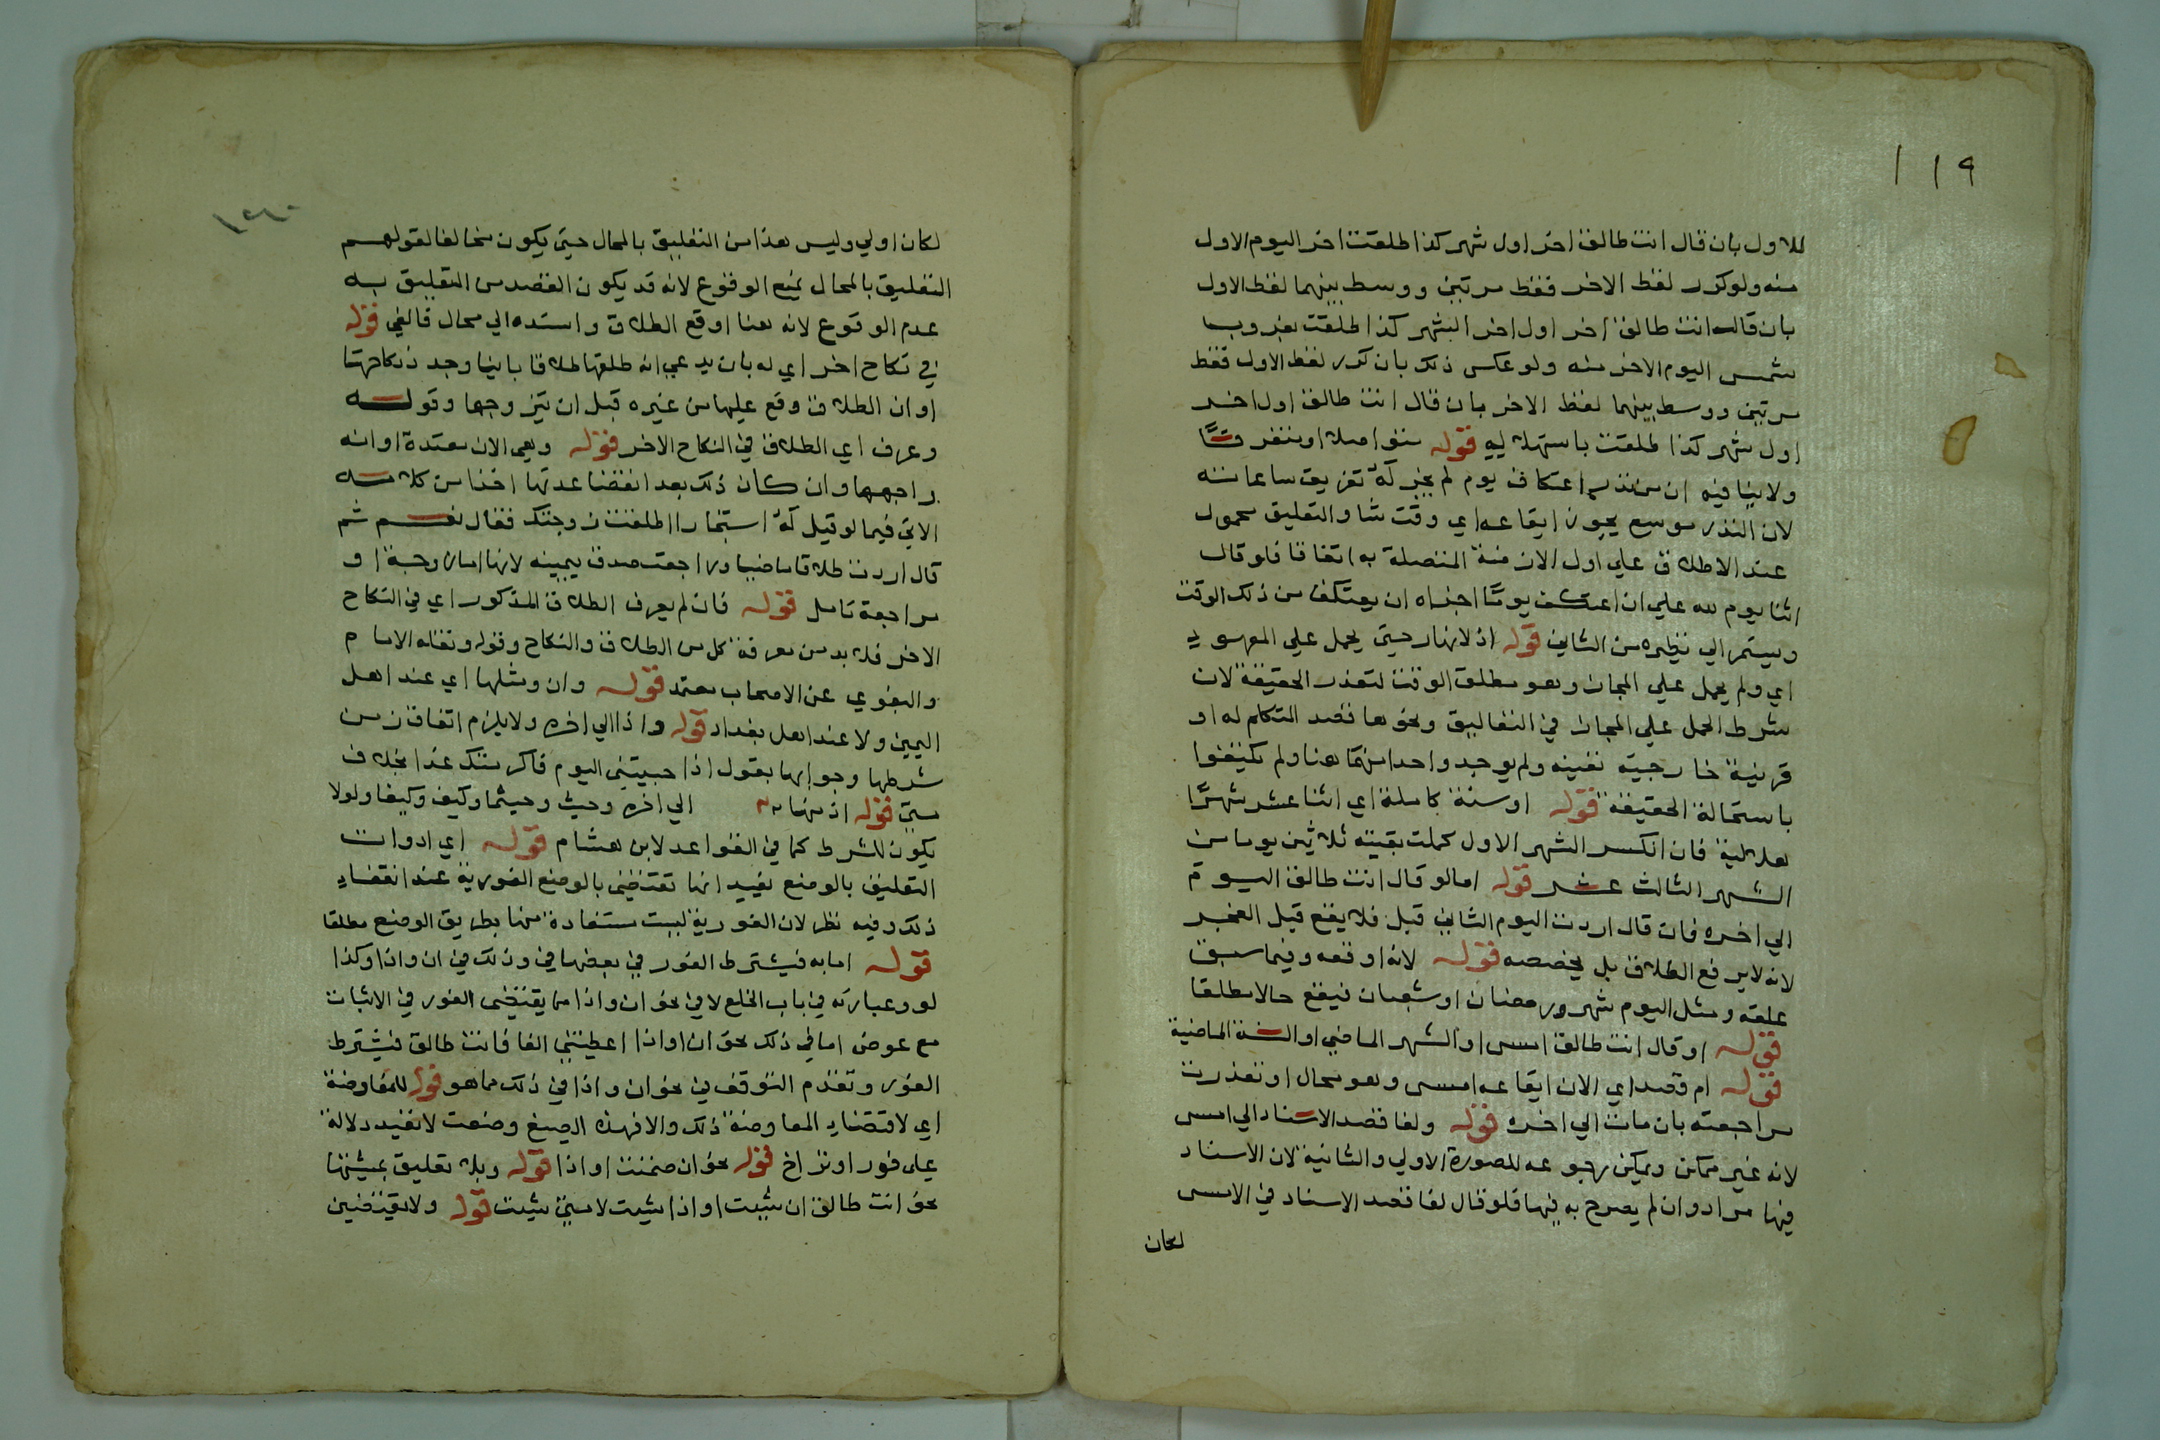 ١١٩
للاول بان قال انت طالق اخر اول شهر كذا طلقت اخر اليوم الاول
منه ولو كرر لفظ الاخر فقط مرتين ووسط بينهما لفظ الاول
بان قال انت طالق اخر اول اخر الشهر كذا طلقت بغروب
شمس اليوم الاخر منه ولو عكس ذلك بان كرر لفظ الاول فقط
مرتين ووسط بينهما لفظ الاخر بان قال انت طالق اول اخر
اول شهر كذا طلقت باستهلاليه قوله متواصلا او متفرقا
ولا ينافيه ان من نذر اعتكاف يوم لم يجز له تفريق ساعاته
لان النذر موسع يجوز ايقاعه اي وقت شا والتعليق محمول
عند الاطلاق علي اول الازمنة المتصلة به اتفاقا فلو قال
اثنا يوم لله علي ان اعتكف يوما اجزاه ان يعتكف من ذلك الوقت
ويستمر الي نظيره من الثاني قوله اذ لانهار حتي يحمل علي المعهود
اي ولم يحمل علي المجاز وهو مطلق الوقت لتعذر الحقيقة لان
شرط الحمل علي المجاز في التعاليق ونحوها قصد التكلم له او
قرينة خارجية تعينه ولم يوجد واحد منهما هنا ولم يكتفوا
باستحالة الحقيقة قوله او سنة كاملة اي اثنا عشر شهرا
هلالية فان انكسر الشهر الاول كملت بقيته ثلاثين يوما من
الشهر الثالث عشر قوله اما لو قال انت طالق اليوم
الي اخره فان قال اردت اليوم الثاني قبل فلا يقع قبل الفجر
لانه لا يرفع الطلاق بل يخصصه قوله لانه اوقعه وفيما سبق
علقه ومثل اليوم شهر ورمضان او شعبان فيقع حالا مطلقا
قوله او قال انت طالق امس او الشهر الماضي او السنة الماضية
قوله ام قصد اي الان ايقاعه امس وهو محال او تعذرت
مراجعته بان مات الي اخره قوله ولغا قصد الاسناد الي امس
لانه غير ممكن ويمكن رجوعه للصورة الاولي والثانية لان الاسناد
فيها مراد وان لم يصرح به فيها فلو قال لغا قصد الاسناد في الامس
لكان
١٢٠
لكان اولي وليس هذا من التعليق بالمحال حتي يكون مخالفا لقولهم
التعليق بالمحال يمنع الوقوع لانه قد يكون القصد من التعليق به
عدم الوقوع لانه هنا اوقع الطلاق واسنده الي محال فالغي قوله
في نكاح اخر اي له بان يدعي انه طلقها طلاقا باينا وجدد نكاحها
او ان الطلاق وقع عليها من غيره قبل ان يتزوجها وقوله
وعرف اي الطلاق في النكاح الاخر قوله وهي الان معتدة او انه
راجعها وان كان ذلك بعد انقضا عدتها اخذا من كلامه
الاتي فيما لو قيل له استخبارا اطلقت زوجتك فقال نعم ثم
قال اردت طلاقا ماضيا وراجعت صدق بيمينه لانها اما زوجة او
مراجعة تامل قوله فان لم يعرف الطلاق المذكور اي في النكاح
الاخر فلا بد من معرفة كل من الطلاق والنكاح وقوله ونقله الامام
والبغوي عن الاصحاب معتمد قوله وان ومثلها اي عند اهل
اليمين ولا عند اهل بغداد قوله واذا الي اخره ولا يلزم اتفاق زمن
شرطها وجوابها بقول اذا جبيتني اليوم فاكرمتك غدا بخلاف
متي قوله اذ منها من الي اخره وحيث وحيثما وكيف وكيفما ولولا
يكون للشرط كما في القواعد لابن هشام قوله اي ادوات
التعليق بالوضع يفيد انها تقتضي بالوضع الفورية عند انتفاء
ذلك وفيه نظر لان الفورية ليست مستفادة منها بطريق الوضع مطلقا
قوله اما به فيشترط الفور في بعضها في وذلك في ان واذا وكذا
لو وعبارته في باب الخلع لا في نحو ان واذا مما يقتضي الفور في الاثبات
مع عوض اما في ذلك نحو ان او اذا اعطيتني الفا فانت طالق فيشترط
الفور وتقدم التوقف في نحو ان واذا في ذلك مما هو قوله للمعاوضة
اي لاقتضاء المعاوضة ذلك والا فهذه الصيغ وضعت لا تفيد دلالة
على فور او تراخ قوله نحو ان ضمنت او اذا قوله وبلا تعليق بمشيئتها
نحو انت طالق ان شيت او اذا شيت لا متي شيت قوله ولا يقتضين